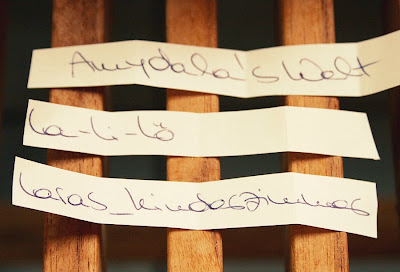 Amydala's Welt
La-Li-Lö
Laras_kinderzimmer